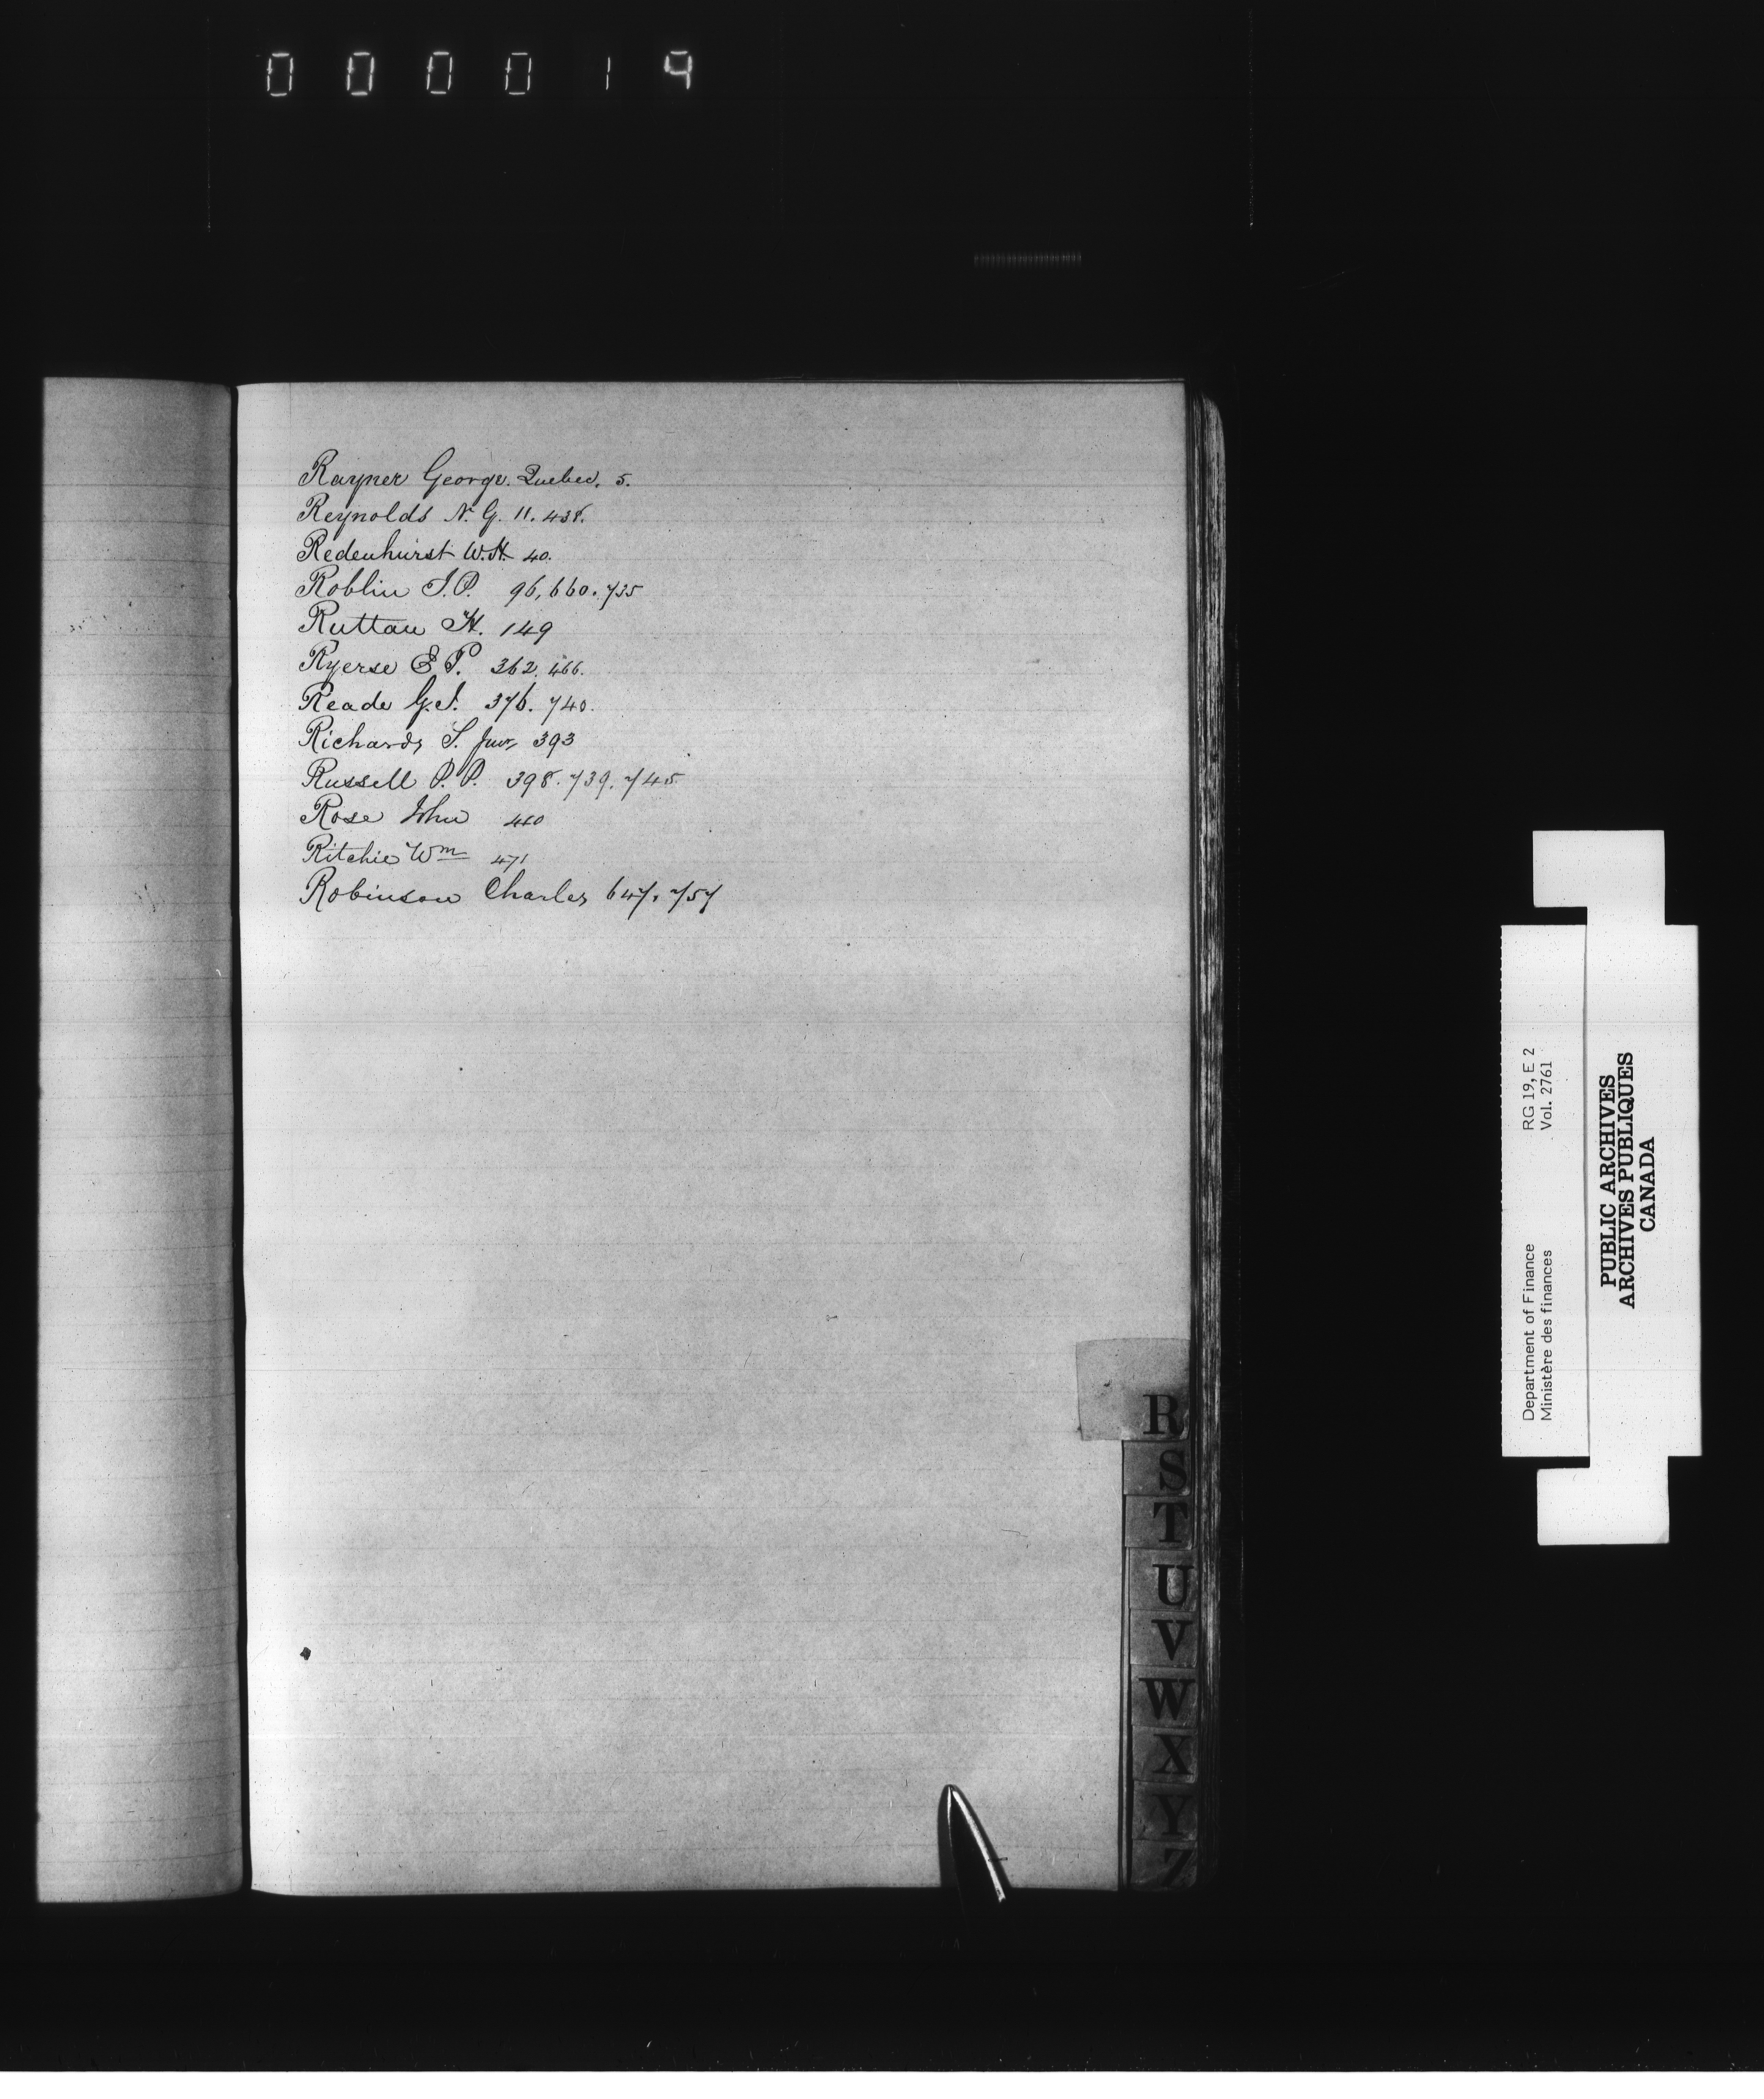 000019
Rayner George. Quebec. 5.
Reynolds N. G. 11. 438.
Redenhurst W.H. 40.
Roblin J.P. 96, 660. 735
Ruttan H. 149
Ryerse E. P. 362. 466.
Reade G.S. 376. 740.
Richards S. Junr 393
Russell P. P. 398. 739. 745
Rose John 460
Ritchie Wm 471
Robinson Charles 647. 757
R
S
T
U
V
W
X
Y
Z
Department of Finance RG 19, E 2
Ministère des finances Vol. 2761
PUBLIC ARCHIVES
ARCHIVES PUBLIQUES
CANADA